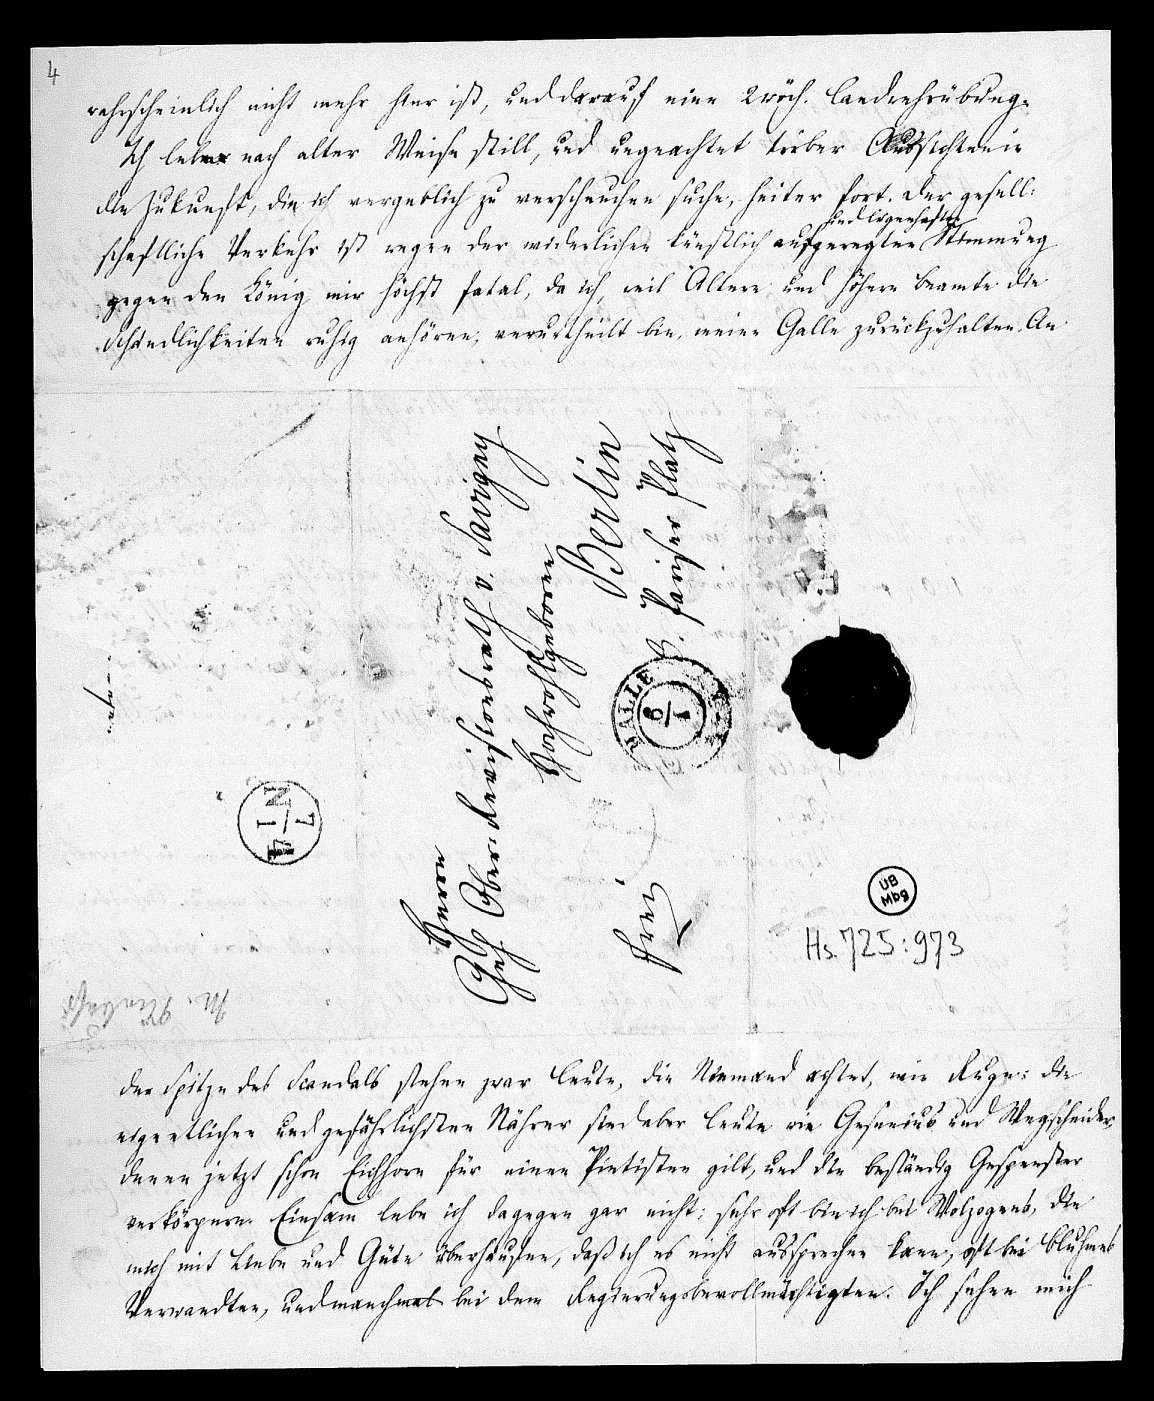 4
wahrscheinlich nicht mehr hier ist, und darauf eine 2wöch. Landwehrübung.
Ich lebe nach alter Weise still, und ungeachtet trüber Aussichten in
die Zukunft, die ich vergeblich zu verscheuchen suche, heiter fort. Der gesell:
und lügenhaften
schaftliche Verkehr ist wegen der widerlichen künstlich aufgeregten Stimmung
gegen den König mir höchst fatal, da ich, weil Ältere und höhere Beamte die
Schändlichkeiten ruhig anhören, verurtheilt bin, meine Galle zurückzuhalten. An
Herrn
Geh. Ober: Revisionsrath v. Savigny
Hochwohlgeboren
Berlin
Pariser Platz
frei
HALLE
6/1
N 1
7/1
UB
Mbg
Hs. 725:973
der Spitze des Scandals stehen zwar Leute, die Niemand achtet, wie Ruge: die
eigentlichen und gefährlichsten Nährer sind aber Leute wie Gesenius und Wegscheider,
denen jetzt schon Eichhorn für einen Pietisten gilt, und die beständig Gespenster
verkörpern. Einsam lebe ich dagegen gar nicht; sehr oft bin ich bei Wolzogens, die
mich mit Liebe und Güte überhäufen, daß ich es nicht aussprechen kann, oft bei Bluhmes
Verwandten, und manchmal bei dem Regierungsbevollmächtigten. Ich sehne mich